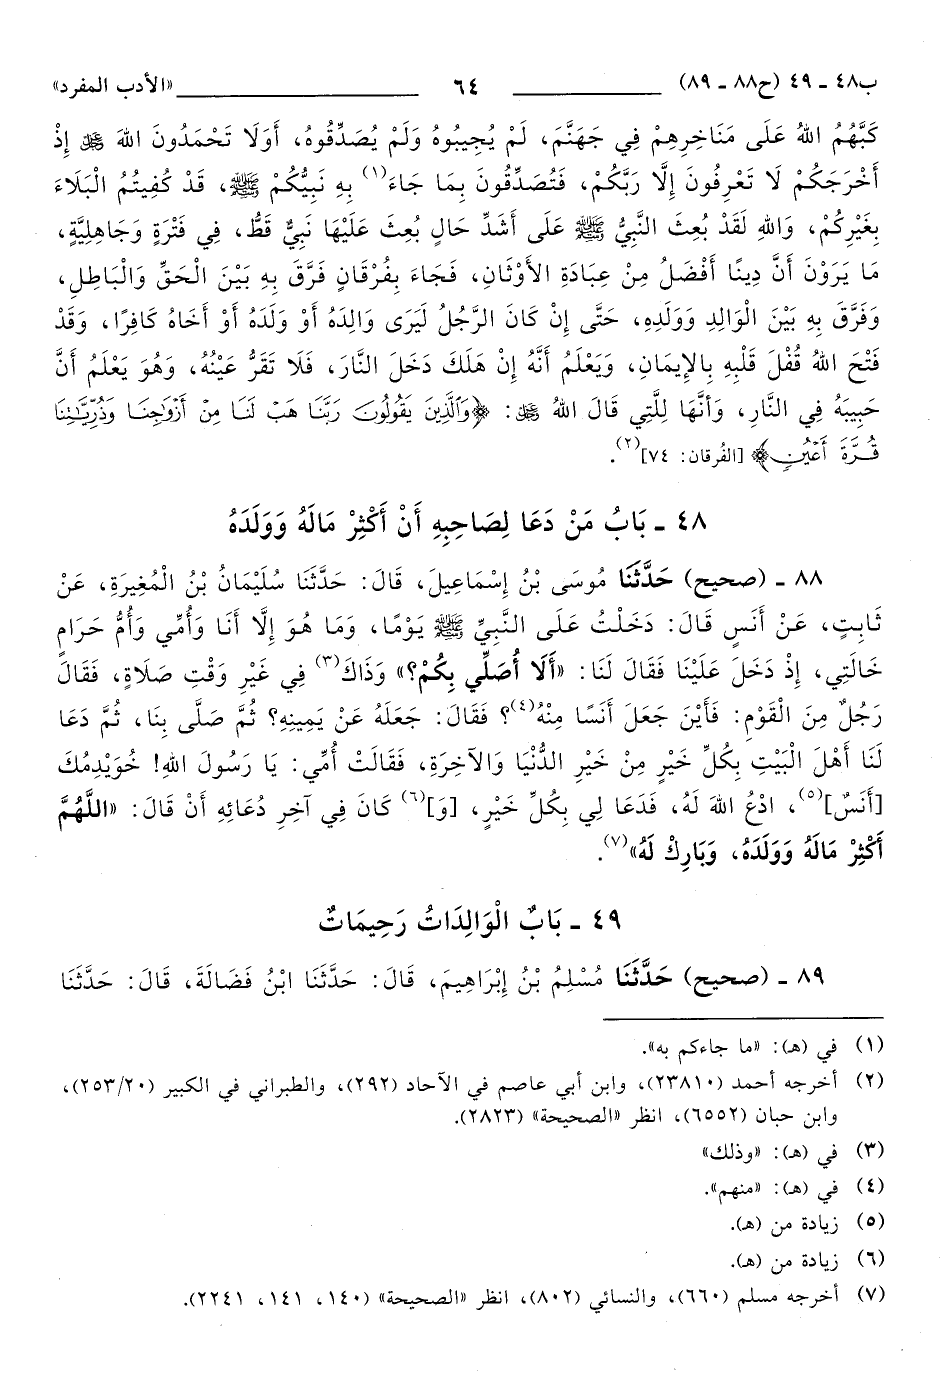 ب٤٨ ـ ٤٩ (ح٨٨ ـ ٨٩) ٦٤ «الأدب المفرد»
كَبَّهُمُ اللهُ عَلَى مَنَاخِرِهِمْ فِي جَهَنَّمَ، لَمْ يُجِيبُوهُ وَلَمْ يُصَدِّقُوهُ، أَوَلَا تَحْمَدُونَ اللهَ ﷻ إِذْ
أَخْرَجَكُمْ لَا تَعْرِفُونَ إِلَّا رَبَّكُمْ، فَتُصَدِّقُونَ بِمَا جَاءَ(١) بِهِ نَبِيُّكُمْ ﷺ، قَدْ كُفِيتُمُ الْبَلَاءَ
بِغَيْرِكُمْ، وَاللهِ لَقَدْ بُعِثَ النَّبِيُّ ﷺ عَلَى أَشَدِّ حَالٍ بُعِثَ عَلَيْهَا نَبِيٌّ قَطُّ، فِي فَتْرَةٍ وَجَاهِلِيَّةٍ،
مَا يَرَوْنَ أَنَّ دِينًا أَفْضَلُ مِنْ عِبَادَةِ الأَوْثَانِ، فَجَاءَ بِفُرْقَانٍ فَرَّقَ بِهِ بَيْنَ الْحَقِّ وَالْبَاطِلِ،
وَفَرَّقَ بِهِ بَيْنَ الْوَالِدِ وَوَلَدِهِ، حَتَّى إِنْ كَانَ الرَّجُلُ لَيَرَى وَالِدَهُ أَوْ وَلَدَهُ أَوْ أَخَاهُ كَافِرًا، وَقَدْ
فَتْحَ اللهُ قُفْلَ قَلْبِهِ بِالإِيمَانِ، وَيَعْلَمُ أَنَّهُ إِنْ هَلَكَ دَخَلَ النَّارَ، فَلَا تَقَرُّ عَيْنُهُ، وَهُوَ يَعْلَمُ أَنَّ
حَبِيبَهُ فِي النَّارِ، وَأَنَّهَا لِلَّتِي قَالَ اللهُ ﷻ: ﴿وَٱلَّذِينَ يَقُولُونَ رَبَّنَا هَبْ لَنَا مِنْ أَزْوَٰجِنَا وَذُرِّيَّٰتِنَا
قُرَّةَ أَعْيُنٍ﴾ [الفُرقان: ٧٤](٢).
٤٨ ـ بَابُ مَنْ دَعَا لِصَاحِبِهِ أَنْ أَكْثِرْ مَالَهُ وَوَلَدَهُ
٨٨ ـ (صحيح) حَدَّثَنَا مُوسَى بْنُ إِسْمَاعِيلَ، قَالَ: حَدَّثَنَا سُلَيْمَانُ بْنُ الْمُغِيرَةِ، عَنْ
ثَابِتٍ، عَنْ أَنَسٍ قَالَ: دَخَلْتُ عَلَى النَّبِيِّ ﷺ يَوْمًا، وَمَا هُوَ إِلَّا أَنَا وَأُمِّي وَأُمُّ حَرَامٍ
خَالَتِي، إِذْ دَخَلَ عَلَيْنَا فَقَالَ لَنَا: «أَلَا أُصَلِّي بِكُمْ؟» وَذَاكَ(٣) فِي غَيْرِ وَقْتِ صَلَاةٍ، فَقَالَ
رَجُلٌ مِنَ الْقَوْمِ: فَأَيْنَ جَعَلَ أَنَسًا مِنْهُ(٤)؟ فَقَالَ: جَعَلَهُ عَنْ يَمِينِهِ؟ ثُمَّ صَلَّى بِنَا، ثُمَّ دَعَا
لَنَا أَهْلَ الْبَيْتِ بِكُلِّ خَيْرٍ مِنْ خَيْرِ الدُّنْيَا وَالآخِرَةِ، فَقَالَتْ أُمِّي: يَا رَسُولَ اللهِ! خُوَيْدِمُكَ
[أَنَسٌ](٥)، ادْعُ اللهَ لَهُ، فَدَعَا لِي بِكُلِّ خَيْرٍ، [وَ](٦) كَانَ فِي آخِرِ دُعَائِهِ أَنْ قَالَ: «اللَّهُمَّ
أَكْثِرْ مَالَهُ وَوَلَدَهُ، وَبَارِكْ لَهُ»(٧).
٤٩ ـ بَابٌ الْوَالِدَاتُ رَحِيمَاتٌ
٨٩ ـ (صحيح) حَدَّثَنَا مُسْلِمُ بْنُ إِبْرَاهِيمَ، قَالَ: حَدَّثَنَا ابْنُ فَضَالَةَ، قَالَ: حَدَّثَنَا
(١) في (هـ): «ما جاءكم به».
(٢) أخرجه أحمد (٢٣٨١٠)، وابن أبي عاصم في الآحاد (٢٩٢)، والطبراني في الكبير (٢٥٣/٢٠)،
وابن حبان (٦٥٥٢)، انظر «الصحيحة» (٢٨٢٣).
(٣) في (هـ): «وذلك»
(٤) في (هـ): «منهم».
(٥) زيادة من (هـ).
(٦) زيادة من (هـ).
(٧) أخرجه مسلم (٦٦٠)، والنسائي (٨٠٢)، انظر «الصحيحة» (١٤٠، ١٤١، ٢٢٤١).